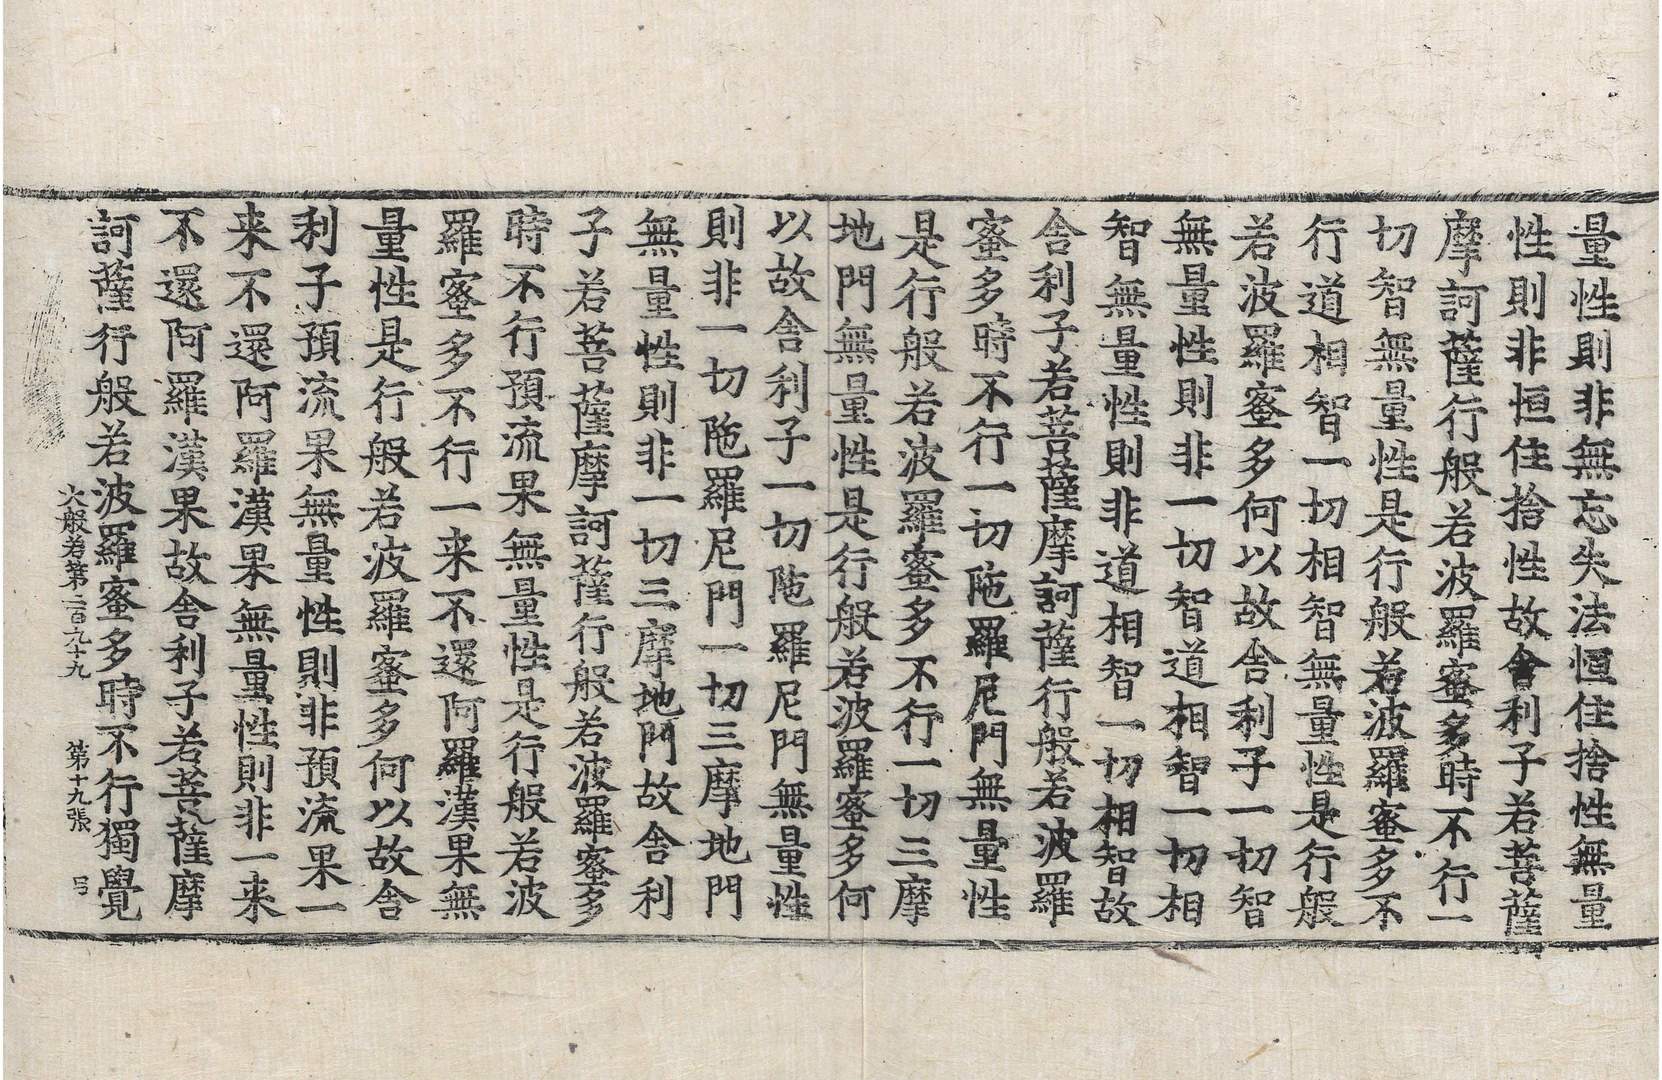 量性則非無忘失法恒住捨性無量
性則非恒住捨性故舍利子若菩薩
摩訶薩行般若波羅蜜多時不行一
切智無量性是行般若波羅蜜多不
行道相智一切相智無量性是行般
若波羅蜜多何以故舍利子一切智
無量性則非一切智道相智一切相
智無量性則非道相智一切相智故
舍利子若菩薩摩訶薩行般若波羅
蜜多時不行一切陁羅尼門無量性
是行般若波羅蜜多不行一切三摩
地門無量性是行般若波羅蜜多何
以故舍利子一切陁羅尼門無量性
則非一切陁羅尼門一切三摩地門
無量性則非一切三摩地門故舍利
子若菩薩摩訶薩行般若波羅蜜多
時不行預流果無量性是行般若波
羅蜜多不行一来不還阿羅漢果無
量性是行般若波羅蜜多何以故舍
利子預流果無量性則非預流果一
来不還阿羅漢果無量性則非一来
不還阿羅漢果故舍利子若菩薩摩
訶薩行般若波羅蜜多時不行獨覺
大般若第二百九十九 第十九張 呂